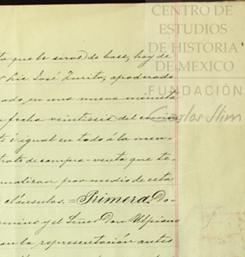 CENTRO DE
ESTUDIOS
DE HISTORIA
DE MEXICO
FUNDACIÓN
Carlos Slim
ta que le sirvió de base, hoy de
José Zurita, apoderado
ado, en una nueva minuta
fecha veintiseis del
é igual en todo á la men
trato de compra-venta que te
matizan por medio de esta
cláusulas. = Primera. Do
mino y el Señor Don Ulpiano
en la representación antes